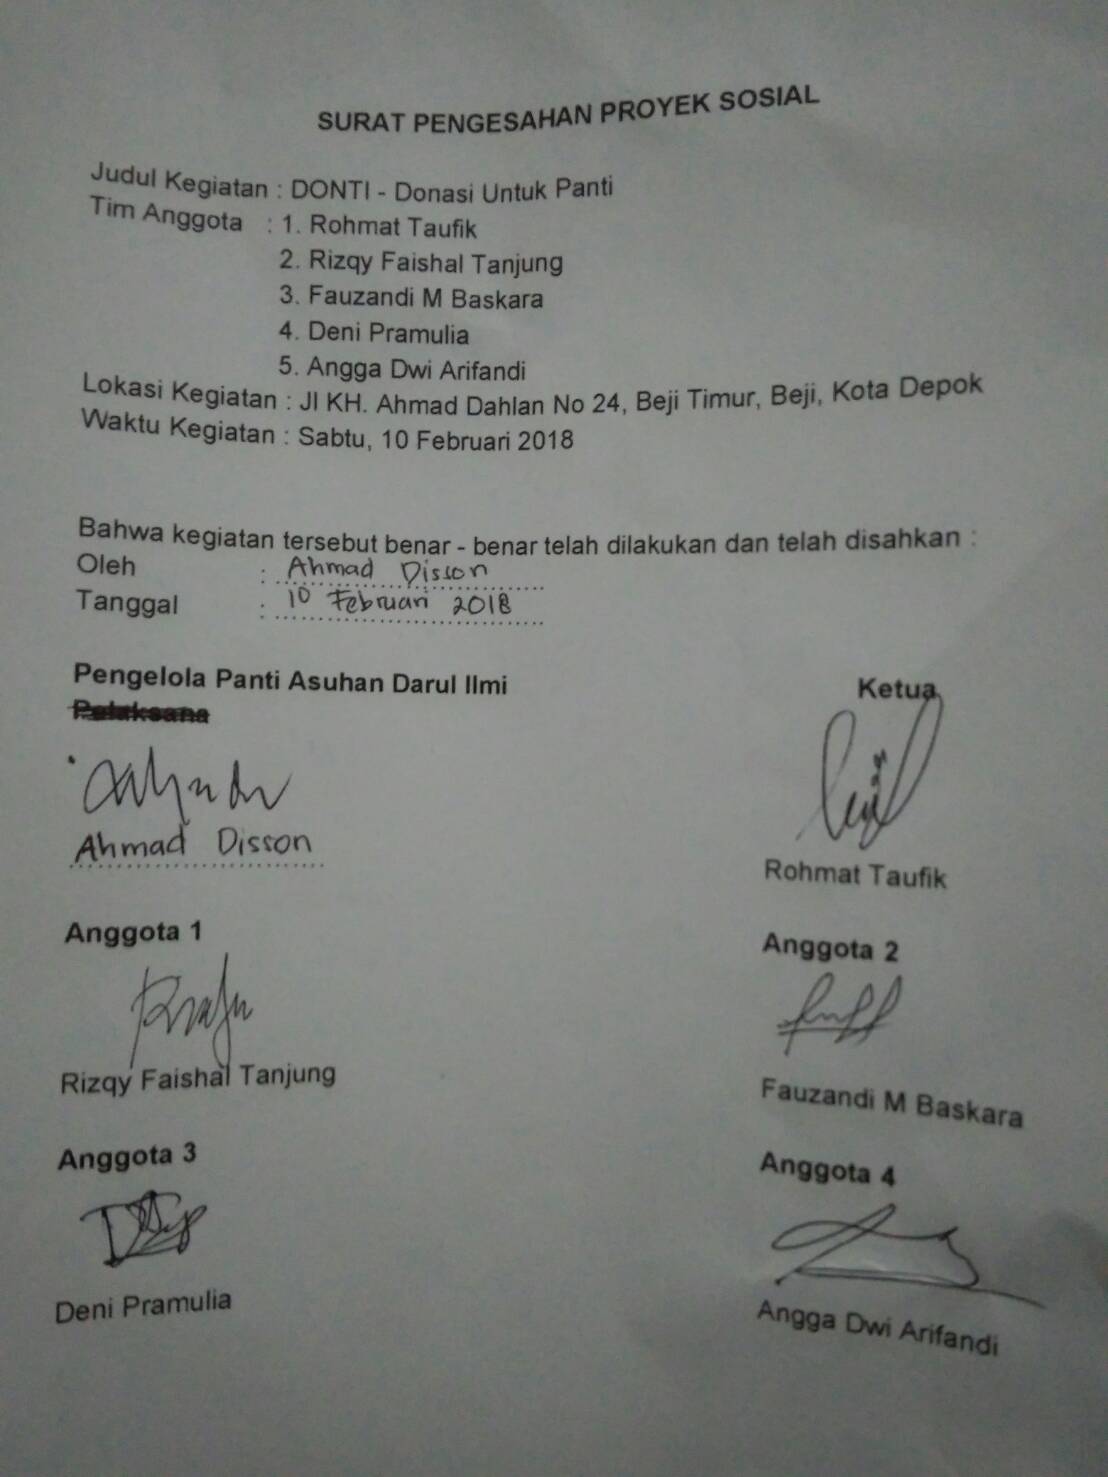 SURAT PENGESAHAN PROYEK SOSIAL
Judul Kegiatan : DONTI - Donasi Untuk Panti
Tim Anggota : 1. Rohmat Taufik
2. Rizqy Faishal Tanjung
3. Fauzandi M Baskara
4. Deni Pramulia
5. Angga Dwi Arifandi
Lokasi Kegiatan : Jl KH. Ahmad Dahlan No 24, Beji Timur, Beji, Kota Depok
Waktu Kegiatan : Sabtu, 10 Februari 2018
Bahwa kegiatan tersebut benar - benar telah dilakukan dan telah disahkan :
Oleh : Ahmad Disson
Tanggal : 10 Februari 2018
Pengelola Panti Asuhan Darul Ilmi
Pelaksana
Ahmad Disson
Ketua
Rohmat Taufik
Anggota 1
Rizqy Faishal Tanjung
Anggota 2
Fauzandi M Baskara
Anggota 3
Deni Pramulia
Anggota 4
Angga Dwi Arifandi